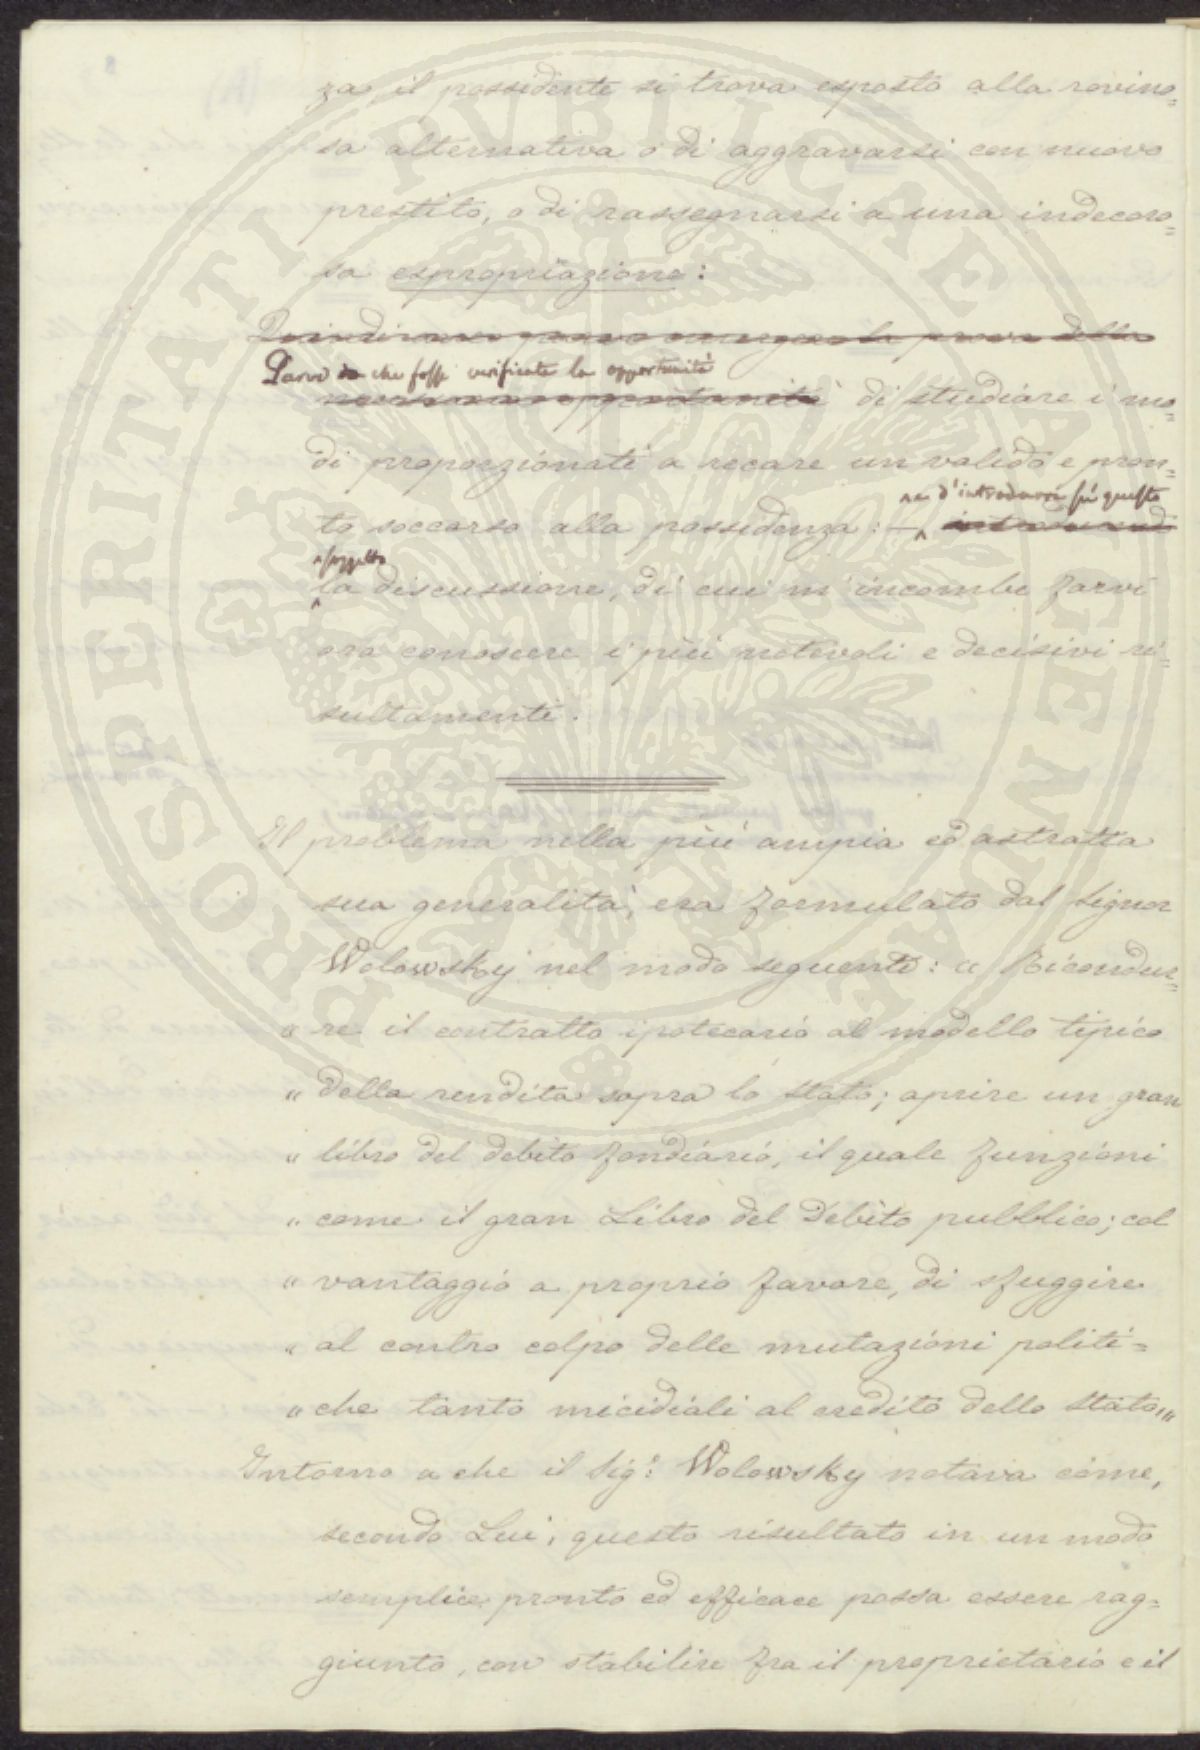 za, il possidente si trova esposto alla rovino=
sa alternativa o di aggravarsi con nuovo
prestito, o di rassegnarsi a una indecoro=
sa espropriazione:
Parve che fosse verificata la opportunità
di studiare i mo=
di proporzionati a recare un valido e pron=
ne d'introdurre su questo
to soccorso alla possidenza: —
soggetto
la discussione, di cui m'incombe farvi
ora conoscere i più notevoli e decisivi ri=
sultamenti.
Il problema nella più ampia ed astratta
sua generalità, era formulato dal Signor
Wolowsky nel modo seguente: « Ricondur=
" re il contratto ipotecario al modello tipico
" della rendita sopra lo stato; aprire un gran
" libro del debito fondiario, il quale funzioni
" come il gran Libro del Debito pubblico; col
" vantaggio a proprio favore, di sfuggire
" al contro colpo delle mutazioni politi=
" che tanto micidiali al credito dello Stato,"
Intorno a che il Sig.r Wolowsky notava come,
secondo Lui, questo risultato in un modo
semplice pronto ed efficace possa essere rag=
giunto, con stabilire fra il proprietario e il
PROSPERITATI PVBLICAE AVGENDAE